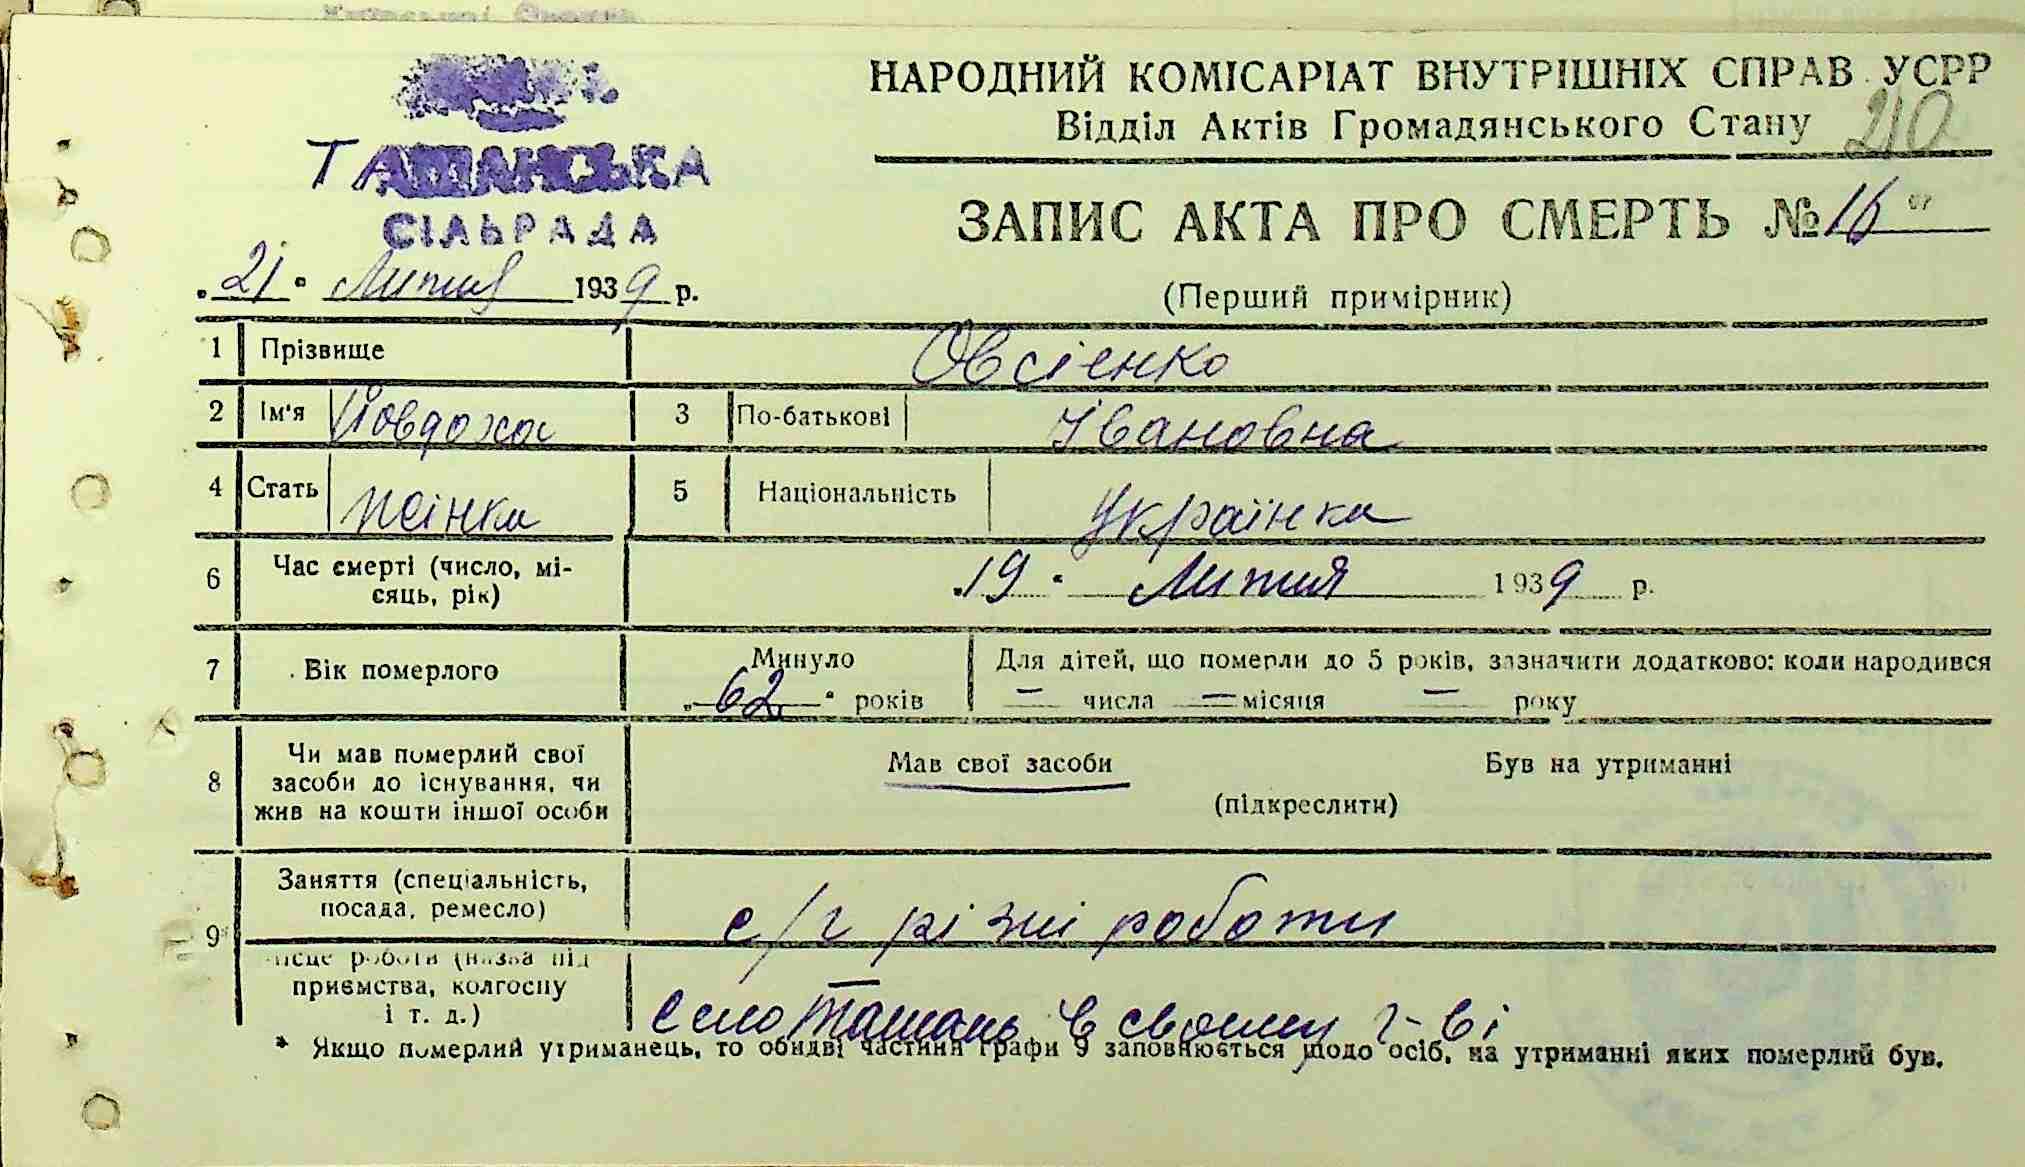 НАРОДНИЙ КОМІСАРІАТ ВНУТРІШНІХ СПРАВ УСРР
Відділ Актів Громадянського Стану
210
ТАШАНСЬКА
СІЛЬРАДА
ЗАПИС АКТА ПРО СМЕРТЬ № 16
"21" Липня 1939 р.
(Перший примірник)
1 Прізвище Овсієнко
2 Ім'я Йовдоха 3 По-батькові Івановна
4 Стать жінка 5 Національність Українка
6 Час смерті (число, мі-
сяць, рік) "19" Липня 1939 р.
7 Вік померлого Минуло "62" років Для дітей, що померли до 5 років, зазначити додатково: коли народився
— числа — місяця — року
8 Чи мав померлий свої
засоби до існування, чи
жив на кошти іншої особи
Мав свої засоби Був на утриманні
(підкреслити)
9 Заняття (спеціальність,
посада, ремесло) с/г різні роботи
Місце роботи (назва під
приємства, колгоспу
і т. д.) село Ташань в своєму г-ві
* Якщо померлий утриманець, то обидві частини графи 9 заповнюється щодо осіб, на утриманні яких померлий був.